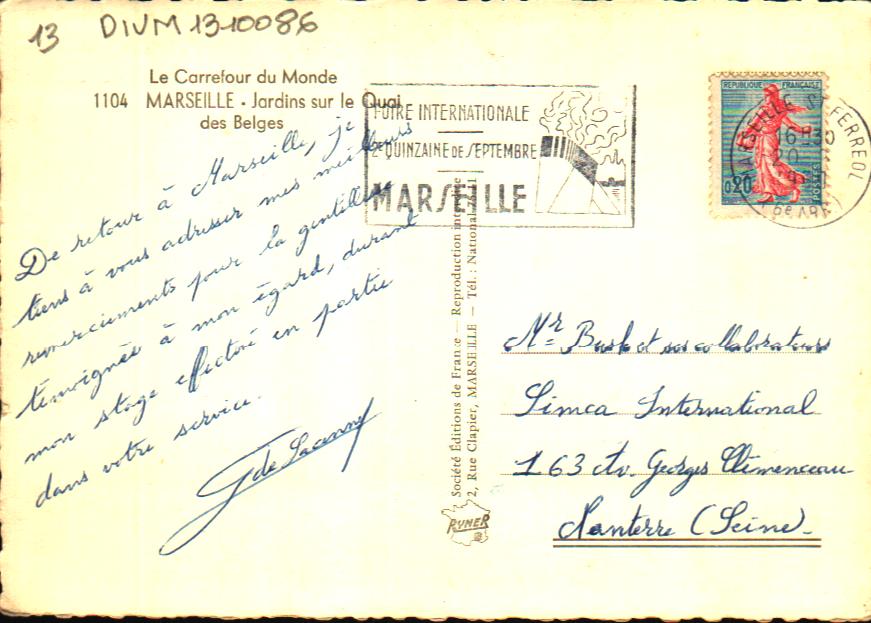 13 DIVM 13-10086
Le Carrefour du Monde
1104 MARSEILLE - Jardins sur le Quai
des Belges
FOIRE INTERNATIONALE
2e QUINZAINE DE SEPTEMBRE
MARSEILLE
REPUBLIQUE FRANÇAISE
0,20
POSTES
MARSEILLE ST FERREOL
16H30
20
De retour à Marseille, je
tiens à vous adresser mes meilleurs
remerciements pour la gentillesse
témoignée à mon égard, durant
mon stage effectué en partie
dans votre service.
G de
Société Éditions de France — Reproduction
2, Rue Clapier, MARSEILLE — Tél. : National
RYNER
Mr et ses collaborateurs
Simca International
163 Av. Georges Clémenceau
Nanterre (Seine)